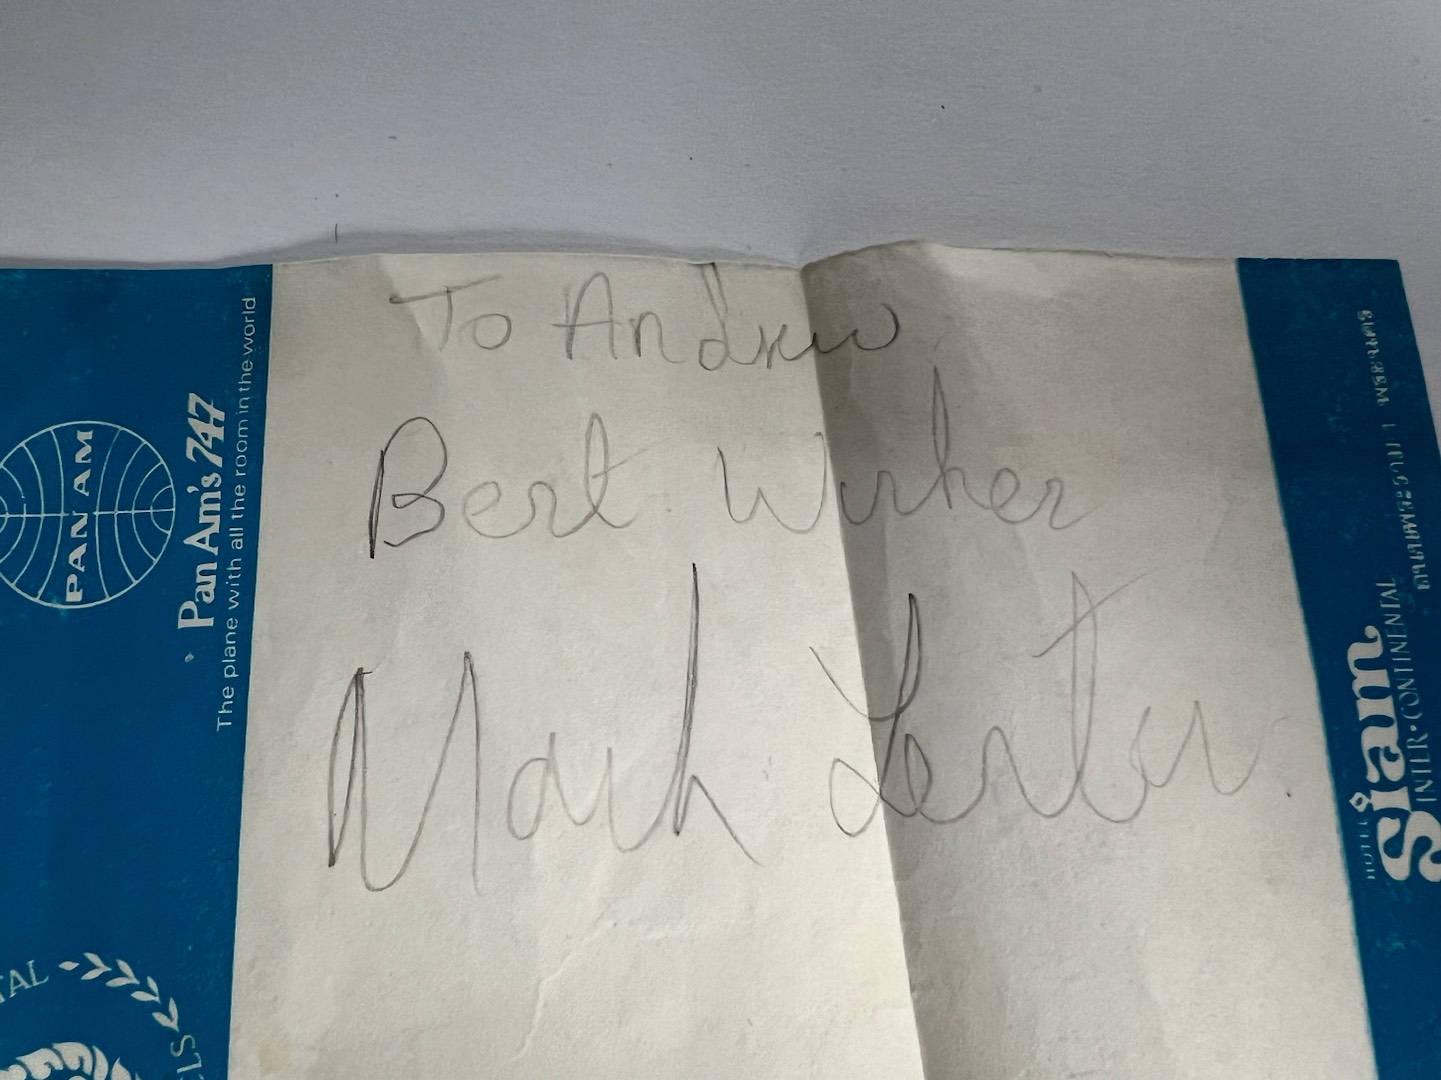 To Andrew
Best Wishes
Mark Lester.
PAN AM
Pan Am's 747
The plane with all the room in the world
TAL
ELS
HOTEL
Siam
INTER·CONTINENTAL